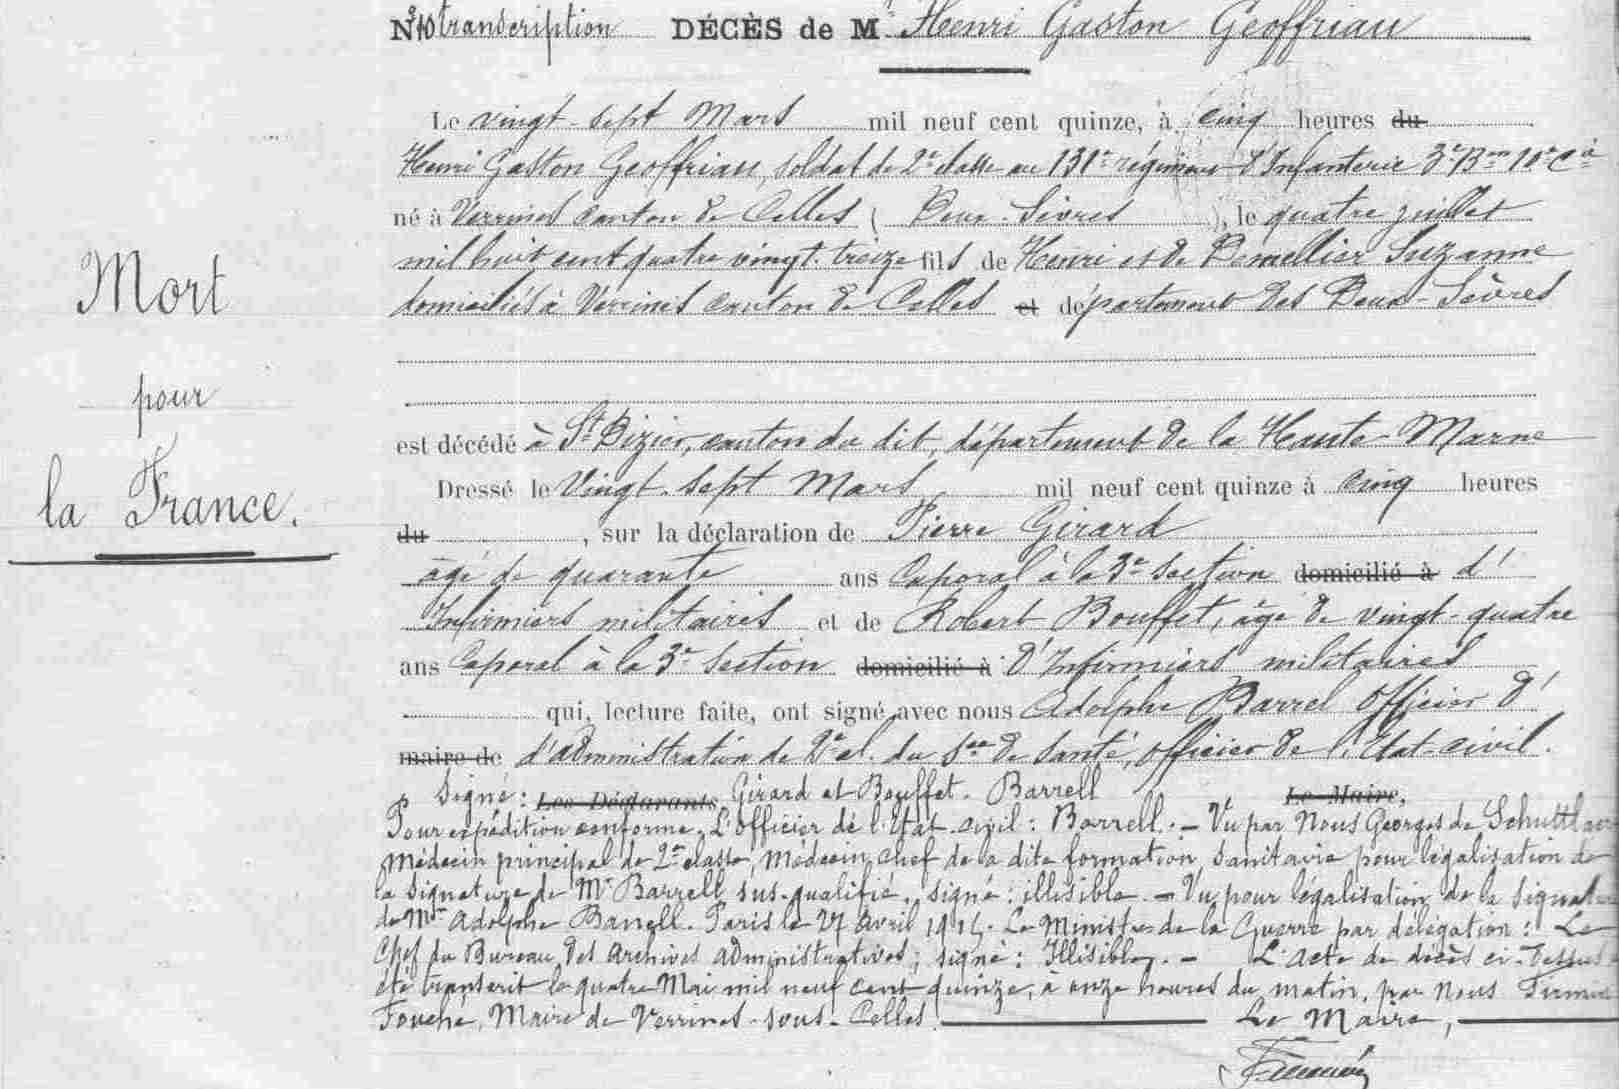 N° 10 transcription DÉCÈS de Mr Henri Gaston Geoffriau
Le vingt-sept Mars mil neuf cent quinze, à cinq heures du
Henri Gaston Geoffriau, soldat de 2e classe au 131e régiment d'Infanterie 3e Bon 10e Cie
né à Verrines canton de Celles (Deux-Sèvres), le quatre juillet
mil huit cent quatre vingt-treize fils de Henri et de Demellier Suzanne
domiciliés à Verrines canton de Celles et département des Deux-Sèvres
Mort
pour
la France.
est décédé à St Dizier, canton du dit, département de la Haute-Marne
Dressé le Vingt-sept Mars mil neuf cent quinze à cinq heures
du , sur la déclaration de Pierre Girard
âgé de quarante ans Caporal à la 3e section domicilié à d'
Infirmiers militaires et de Robert Bouffet, âgé de vingt-quatre
ans Caporal à la 3e Section domicilié à d'Infirmiers militaires
qui, lecture faite, ont signé avec nous Adolphe Barrel Officier d'
maire de d'administration de 2e cl. du Sce de Santé, officier de l'Etat-civil.
Signé : Les Déclarants Girard et Bouffet. Barrell Le Maire,
Pour expédition conforme, L'Officier de l'Etat-civil : Barrell. - Vu par Nous Georges de
Médecin principal de 2me classe, Médecin chef de la dite formation sanitaire pour légalisation de
la signature de Mr Barrell sus-qualifié, signé : illisible. - Vu pour légalisation de la signature
de Mr Adolphe Barrell. Paris le 27 Avril 1915. Le Ministre de la Guerre par délégation : Le
Chef du Bureau des Archives Administratives ; signé : Illisible. - L'acte de décès ci-dessus a
été transcrit le quatre Mai mil neuf cent quinze, à onze heures du matin, par Nous Firmin
Fouché, Maire de Verrines-sous-Celles. Le Maire,